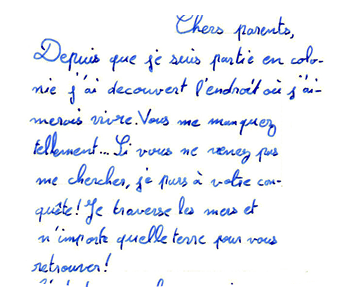 Chers parents,
Depuis que je suis partie en colo-
nie j'ai decouvert l'endroit où j'ai-
merais vivre. Vous me manquez
tellement... Si vous ne venez pas
me chercher, je pars à votre con-
quête! Je traverse les mers et
n'importe quelle terre pour vous
retrouver!